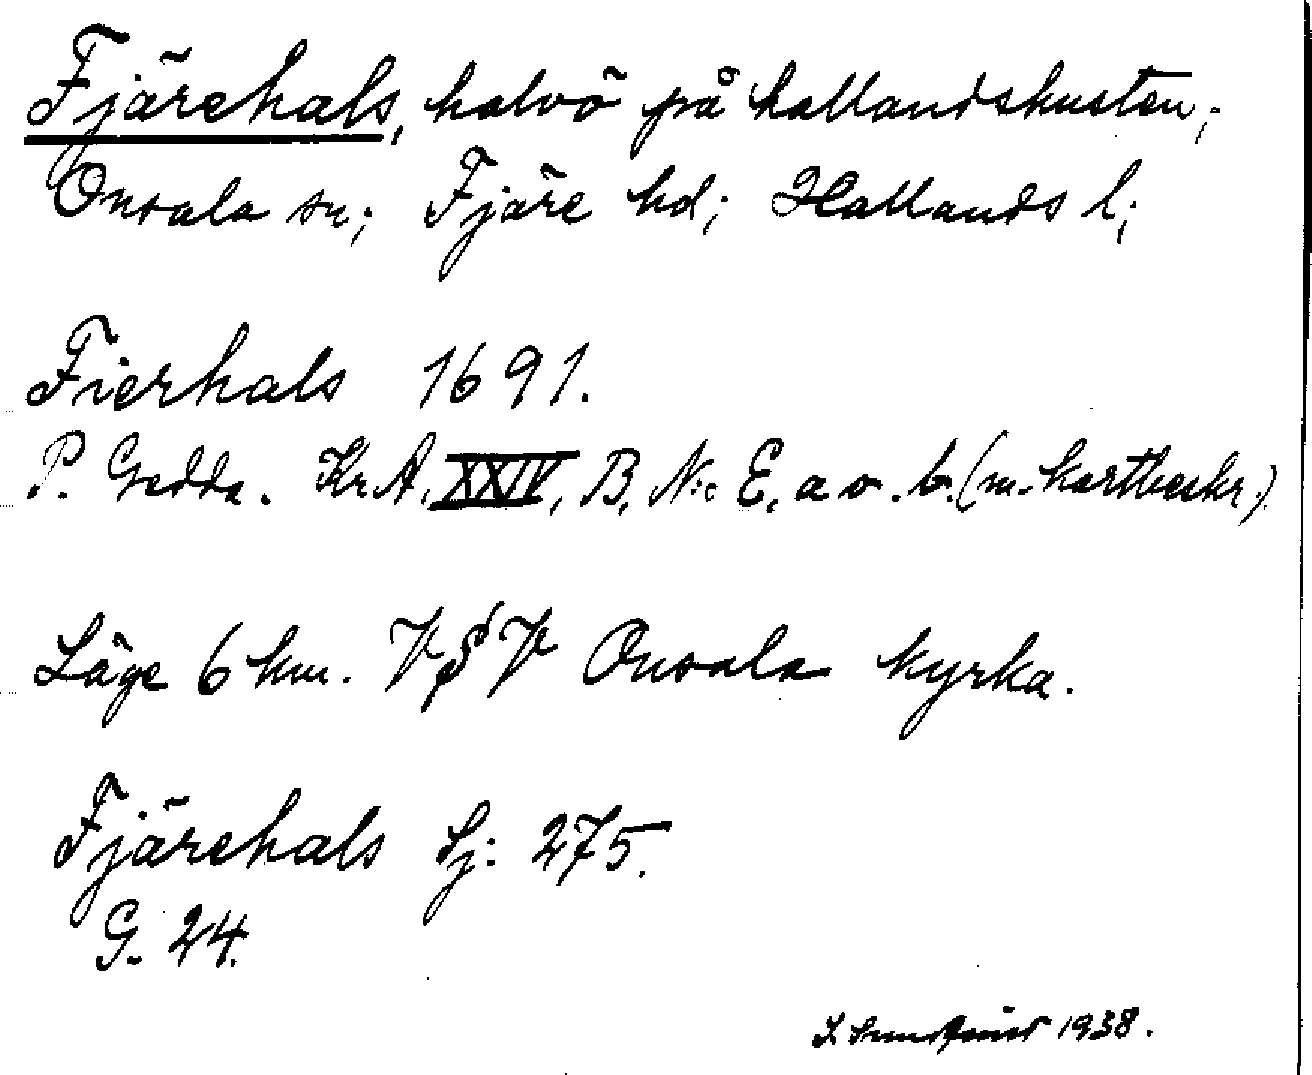 Fjärehals, halvö på hallandskusten;
Onsala sn; Fjäre hd; Hallands l;
Fierhals 1691.
P. Gedda. Kr.A. XXIV, B, N:o E, a o. b. (m. kartbeskr.)
Läge 6 km. VSV Onsala kyrka.
Fjärehals Sj: 275.
G. 24.
1938.